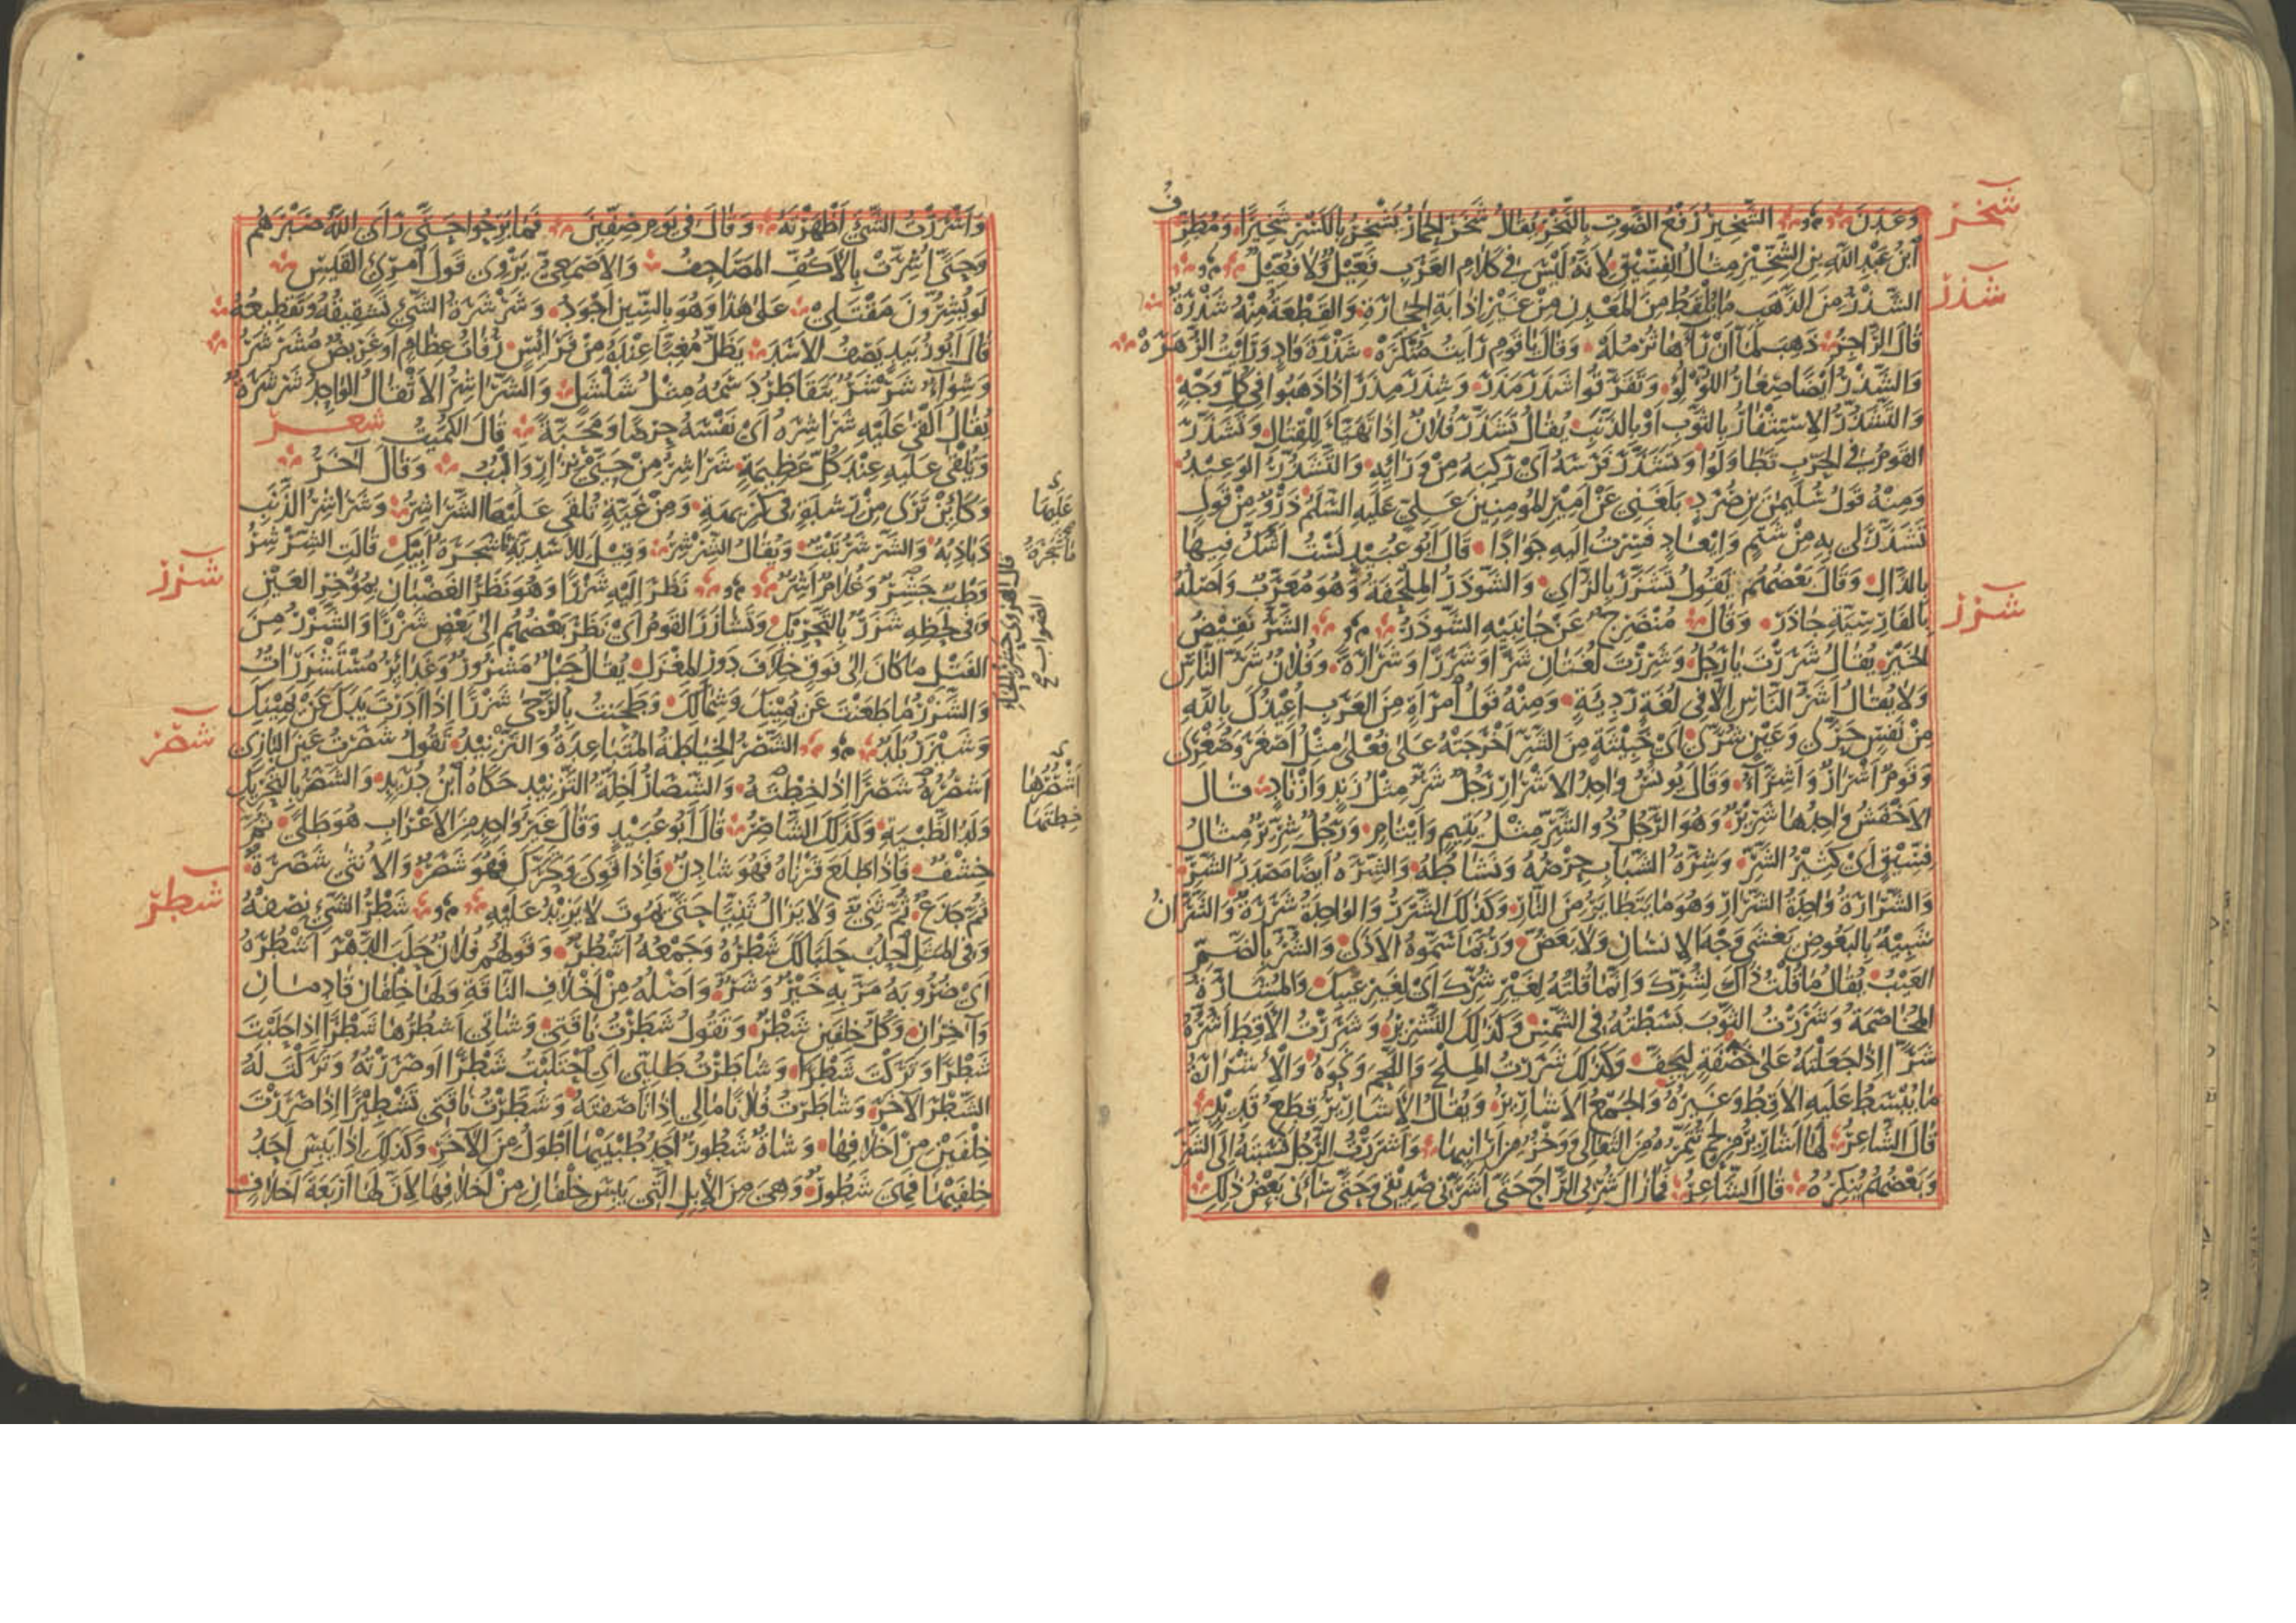 شخر
وَعَدَنَ الشَّخِيرُ رَفْعُ الصَّوْتِ بِالنَّخْرِ يُقَالُ شَخَرَ الحِمَارُ يَشْخِرُ بِالكَسْرِ شَخِيرًا وَمُطَرِّفُ
ابْنُ عَبْدِ اللهِ بنِ الشِّخِّيرِ مِثَالُ الفِسِّيقِ لِأَنَّهُ لَيْسَ فِي كَلَامِ العَرَبِ فَعِّيلٌ وَلَا فُعِّيلٌ
شذر
الشَّذْرُ مِنَ الذَّهَبِ مَا يُلْقَطُ مِنَ المَعْدِنِ مِنْ غَيْرِ إِذَابَةِ الحِجَارَةِ وَالقِطْعَةُ مِنْهُ شَذْرَةٌ
قَالَ الرَّاجِزُ ذَهَبَ لَمَّا أَنْ رَآهَا ثُرْمُلَهْ وَقَالَ يَا قَوْمِ رَأَيْتُ مُنْكَرَهْ شَذْرَةَ وَادٍ وَرَأَيْتُ الزُّهَرَهْ
وَالشَّذْرُ أَيْضًا صِغَارُ اللُّؤْلُؤِ وَتَفَرَّقُوا شَذَرَ مَذَرَ وَشِذَرَ مِذَرَ إِذَا ذَهَبُوا فِي كُلِّ وَجْهٍ
وَالتَّشَذُّرُ الِاسْتِثْفَارُ بِالثَّوْبِ أَوْ بِالذَّنَبِ يُقَالُ تَشَذَّرَ فُلَانٌ إِذَا تَهَيَّأَ لِلْقِتَالِ وَتَشَذَّرَ
القَوْمُ فِي الحَرْبِ تَطَاوَلُوا وَتَشَذَّرَ فَرَسَهُ أَيْ رَكِبَهُ مِنْ وَرَائِهِ وَالتَّشَذُّرُ الوَعِيدُ
وَمِنْهُ قَوْلُ سُلَيْمٰنَ بنِ صُرَدٍ بَلَغَنِي عَنْ أَمِيرِ المُومِنِينَ عَلِيٍّ عَلَيْهِ السَّلَمُ ذَرْوٌ مِنْ قَوْلٍ
تَشَذَّرَ لِي بِهِ مِنْ شَتْمٍ وَإِيعَادٍ فَسِرْتُ إِلَيْهِ جَوَادًا قَالَ أَبُو عُبَيْدٍ لَسْتُ أَشُكُّ فِيهَا
بِالذَّالِ وَقَالَ بَعْضُهُمْ يَقُولُ تَشَزَّرَ بِالزَّاي وَالشَّوْذَرُ المِلْحَفَةُ وَهُوَ مُعَرَّبٌ وَأَصْلُهُ
شرر
بِالفَارِسِيَّةِ جَاذَر وَقَالَ مُنْضَرِجٌ عَنْ جَانِبَيْهِ الشَّوْذَرُ الشَّرُّ نَقِيضُ
الخَيْرِ يُقَالُ شَرَرْتَ يَا رَجُلُ وَشَرِرْتَ لُغَتَانِ شَرًّا وَشَرَرًا وَشَرَارَةً وَفُلَانٌ شَرُّ النَّاسِ
وَلَا يُقَالُ أَشَرُّ النَّاسِ إِلَّا فِي لُغَةٍ رَدِيَّةٍ وَمِنْهُ قَوْلُ امْرَأَةٍ مِنَ العَرَبِ أُعِيذُكَ بِاللهِ
مِنْ نَفْسٍ حَرَّى وَعَيْنٍ شُرَّى أَيْ خَبِيثَةٍ مِنَ الشَّرِّ أَخْرَجَتْهُ عَلَى فُعْلَى مِثْلُ أَصْغَرَ وَصُغْرَى
وَقَوْمٌ أَشْرَارٌ وَأَشِرَّاءُ وَقَالَ يُونُسُ وَاحِدُ الأَشْرَارِ رَجُلٌ شَرٌّ مِثْلُ زَنْدٍ وَأَزْنَادٍ قَالَ
الأَخْفَشُ وَاحِدُهَا شَرِيرٌ وَهُوَ الرَّجُلُ ذُو الشَّرِّ مِثْلُ يَتِيمٍ وَأَيْتَامٍ وَرَجُلٌ شِرِّيرٌ مِثَالُ
فِسِّيقٍ أَيْ كَثِيرُ الشَّرِّ وَشِرَّةُ الشَّبَابِ حِرْصُهُ وَنَشَاطُهُ وَالشِّرَّةُ أَيْضًا مَصْدَرُ الشَّرِّ
وَالشَّرَارَةُ وَاحِدَةُ الشَّرَارِ وَهُوَ مَا يَتَطَايَرُ مِنَ النَّارِ وَكَذَلِكَ الشَّرَرُ وَالوَاحِدَةُ شَرَرَةٌ وَالشَّرَّانُ
شَبِيهٌ بِالبَعُوضِ يَغْشَى وَجْهَ الإِنْسَانِ وَلَا يَعَضُّ وَرُبَّمَا سَمَّوْهُ الأَذَى وَالشُّرُّ بِالضَّمِّ
العَيْبُ يُقَالُ مَا قُلْتُ ذَاكَ لِشُرِّكَ وَإِنَّمَا قُلْتُهُ لِغَيْرِ شُرِّكَ أَيْ لِغَيْرِ عَيْبِكَ وَالمُشَارَّةُ
المُخَاصَمَةُ وَشَرَرْتُ الثَّوْبَ بَسَطْتُهُ فِي الشَّمْسِ وَكَذَلِكَ التَّشْرِيرُ وَشَرَرْتُ الأَقِطَ أَشُرُّهُ
شَرًّا إِذَا جَعَلْتَهُ عَلَى خَصَفَةٍ لِيَجِفَّ وَكَذَلِكَ شَرَرْتُ المِلْحَ وَاللَّحْمَ وَنَحْوَهُ وَالإِشْرَارَةُ
مَا يُبْسَطُ عَلَيْهِ الأَقِطُ وَغَيْرُهُ وَالجَمْعُ الأَشَارِيرُ وَيُقَالُ الأَشَارِيرُ قِطَعُ قَدِيدٍ
قَالَ الشَّاعِرُ لَهَا أَشَارِيرُ مِنْ لَحْمٍ تُتَمِّرُهُ مِنَ الثَّعَالِي وَوَخْزٌ مِنْ أَرَانِيهَا وَأَشْرَرْتُ الرَّجُلَ نَسَبْتُهُ إِلَى الشَّرِّ
وَبَعْضُهُمْ يُنْكِرُهُ قَالَ الشَّاعِرُ فَمَا زَالَ شُرْبِي الرَّاحَ حَتَّى أَشَرَّنِي صَدِيقِي وَحَتَّى سَاءَنِي بَعْضُ ذَلِكَ
وَأَشْرَرْتُ الشَّيْءَ أَظْهَرْتُهُ وَقَالَ فِي يَوْمِ صِفِّينَ فَمَا بَرِحُوا حَتَّى رَأَى اللهُ صَبْرَهُمْ
وَحَتَّى أُشِرَّتْ بِالأَكُفِّ المَصَاحِفُ وَالأَصْمَعِيُّ يَرْوِي قَوْلَ امْرِئِ القَيْسِ
لَوْ يُشِرُّونَ مَقْتَلِي عَلَى هَذَا وَهُوَ بِالسِّينِ أَجْوَدُ وَشَرْشَرَةُ الشَّيْءِ تَشْقِيقُهُ وَتَقْطِيعُهُ
قَالَ أَبُو زُبَيْدٍ يَصِفُ الأَسَدَ يَظَلُّ مُغِبًّا عِنْدَهُ مِنْ فَرَائِسٍ رُفَاتُ عِظَامٍ أَوْ غَرِيضٌ مُشَرْشَرُ
وَشِوَاءٌ شَرْشَرٌ يَتَقَاطَرُ دَسَمُهُ مِثْلُ شَلْشَلٍ وَالشَّرَاشِرُ الأَثْقَالُ الوَاحِدُ شَرْشَرَةٌ
يُقَالُ أَلْقَى عَلَيْهِ شَرَاشِرَهُ أَيْ نَفْسَهُ حِرْصًا وَمَحَبَّةً قَالَ الكُمَيْتُ شعر
وَتُلْقَى عَلَيْهِ عِنْدَ كُلِّ عَظِيمَةٍ شَرَاشِرُ مِنْ حَيَّيْ نِزَارٍ وَأَلْبُبُ وَقَالَ آخَرُ
وَكَائِنْ تَرَى مِنْ رَشْدَةٍ فِي كَرِيهَةٍ وَمِنْ غَيَّةٍ تُلْقَى عَلَيْهَا الشَّرَاشِرُ وَشَرَاشِرُ الذَّنَبِ
ذَبَاذِبُهُ وَالشَّرْشَرُ نَبْتٌ وَيُقَالُ الشِّرْشِرُ وَقِيلَ لِلأَسَدِيَّةِ مَا شَجَرَةُ أَبِيكِ قَالَتِ الشِّرْشِرُ
شزر
وَطْبٌ جَشِرٌ وَغُلَامٌ أَشِرٌ نَظَرَ إِلَيْهِ شَزْرًا وَهُوَ نَظَرُ الغَضْبَانِ بِمُؤْخِرِ العَيْنِ
وَفِي لَحْظِهِ شَزَرٌ بِالتَّحْرِيكِ وَتَشَازَرَ القَوْمُ أَيْ نَظَرَ بَعْضُهُمْ إِلَى بَعْضٍ شَزْرًا وَالشَّزْرُ مِنَ
الفَتْلِ مَا كَانَ إِلَى فَوْقٍ خِلَافَ دَوْرِ المِغْزَلِ يُقَالُ حَبْلٌ مَشْزُورٌ وَغَدَائِرُ مُسْتَشْزِرَاتٌ
وَالشَّزْرُ مَا طَعَنْتَ عَنْ يَمِينِكَ وَشِمَالِكَ وَطَحَنْتُ بِالرَّحَى شَزْرًا إِذَا أَدَرْتَ يَدَكَ عَنْ يَمِينِكَ
شصر
وَشَيْزَرُ بَلَدٌ الشَّصْرُ الخِيَاطَةُ المُتَبَاعِدَةُ وَالتَّزْنِيدُ تَقُولُ شَصَرْتُ عَيْنَ البَازِي
أَشْصُرُهُ شَصْرًا إِذَا خِطْتَهُ وَالشِّصَارُ أَخِلَّةُ التَّزْنِيدِ حَكَاهُ ابْنُ دُرَيْدٍ وَالشَّصَرُ بِالتَّحْرِيكِ
وَلَدُ الظَّبْيَةِ وَكَذَلِكَ الشَّاصِرُ قَالَ أَبُو عُبَيْدٍ وَقَالَ غَيْرُ وَاحِدٍ مِنَ الأَعْرَابِ هُوَ طَلًى ثُمَّ
خِشْفٌ فَإِذَا طَلَعَ قَرْنَاهُ فَهُوَ شَادِنٌ فَإِذَا قَوِيَ وَتَحَرَّكَ فَهُوَ شَصَرٌ وَالأُنْثَى شَصَرَةٌ
شطر
ثُمَّ جَذَعٌ ثُمَّ ثَنِيٌّ وَلَا يَزَالُ ثَنِيًّا حَتَّى يَمُوتَ لَا يَزِيدُ عَلَيْهِ شَطْرُ الشَّيْءِ نِصْفُهُ
وَفِي المَثَلِ احْلُبْ حَلَبًا لَكَ شَطْرُهُ وَجَمْعُهُ أَشْطُرٌ وَقَوْلُهُمْ فُلَانٌ حَلَبَ الدَّهْرَ أَشْطُرَهُ
أَيْ ضُرُوبَهُ مَرَّ بِهِ خَيْرٌ وَشَرٌّ وَأَصْلُهُ مِنْ أَخْلَافِ النَّاقَةِ وَلَهَا خِلْفَانِ قَادِمَانِ
وَآخِرَانِ وَكُلُّ خِلْفَيْنِ شَطْرٌ وَتَقُولُ شَطَرْتُ نَاقَتِي وَشَاتِي أَشْطُرُهَا شَطْرًا إِذَا حَلَبْتَ
شَطْرًا وَتَرَكْتَ شَطْرًا وَشَاطَرْتُ طَلِيَّتِي أَيِ احْتَلَبْتُ شَطْرًا أَوْ صَرَرْتُهُ وَتَرَكْتُ لَهُ
الشَّطْرَ الآخَرَ وَشَاطَرْتُ فُلَانًا مَالِي إِذَا نَاصَفْتَهُ وَشَطَّرْتُ نَاقَتِي تَشْطِيرًا إِذَا صَرَرْتَ
خِلْفَيْنِ مِنْ أَخْلَافِهَا وَشَاةٌ شَطُورٌ أَحَدُ طُبْيَيْهَا أَطْوَلُ مِنَ الآخَرِ وَكَذَلِكَ إِذَا يَبِسَ أَحَدُ
خِلْفَيْهَا فَهِيَ شَطُورٌ وَهِيَ مِنَ الإِبِلِ الَّتِي يَبِسَ خِلْفَانِ مِنْ أَخْلَافِهَا لِأَنَّ لَهَا أَرْبَعَةَ أَخْلَافٍ
عَلَيْهَا
مَا شَجَرَةُ
قال الهروي
الصواب
أَشْصُرُهَا
خِطْتَهَا